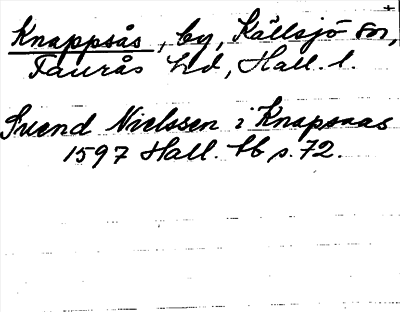 Knappsås, by, Källsjö sn,
Faurås hd, Hall. l.
Svend Nielssen i Knapsaas
1597 Hall. bb s. 72.